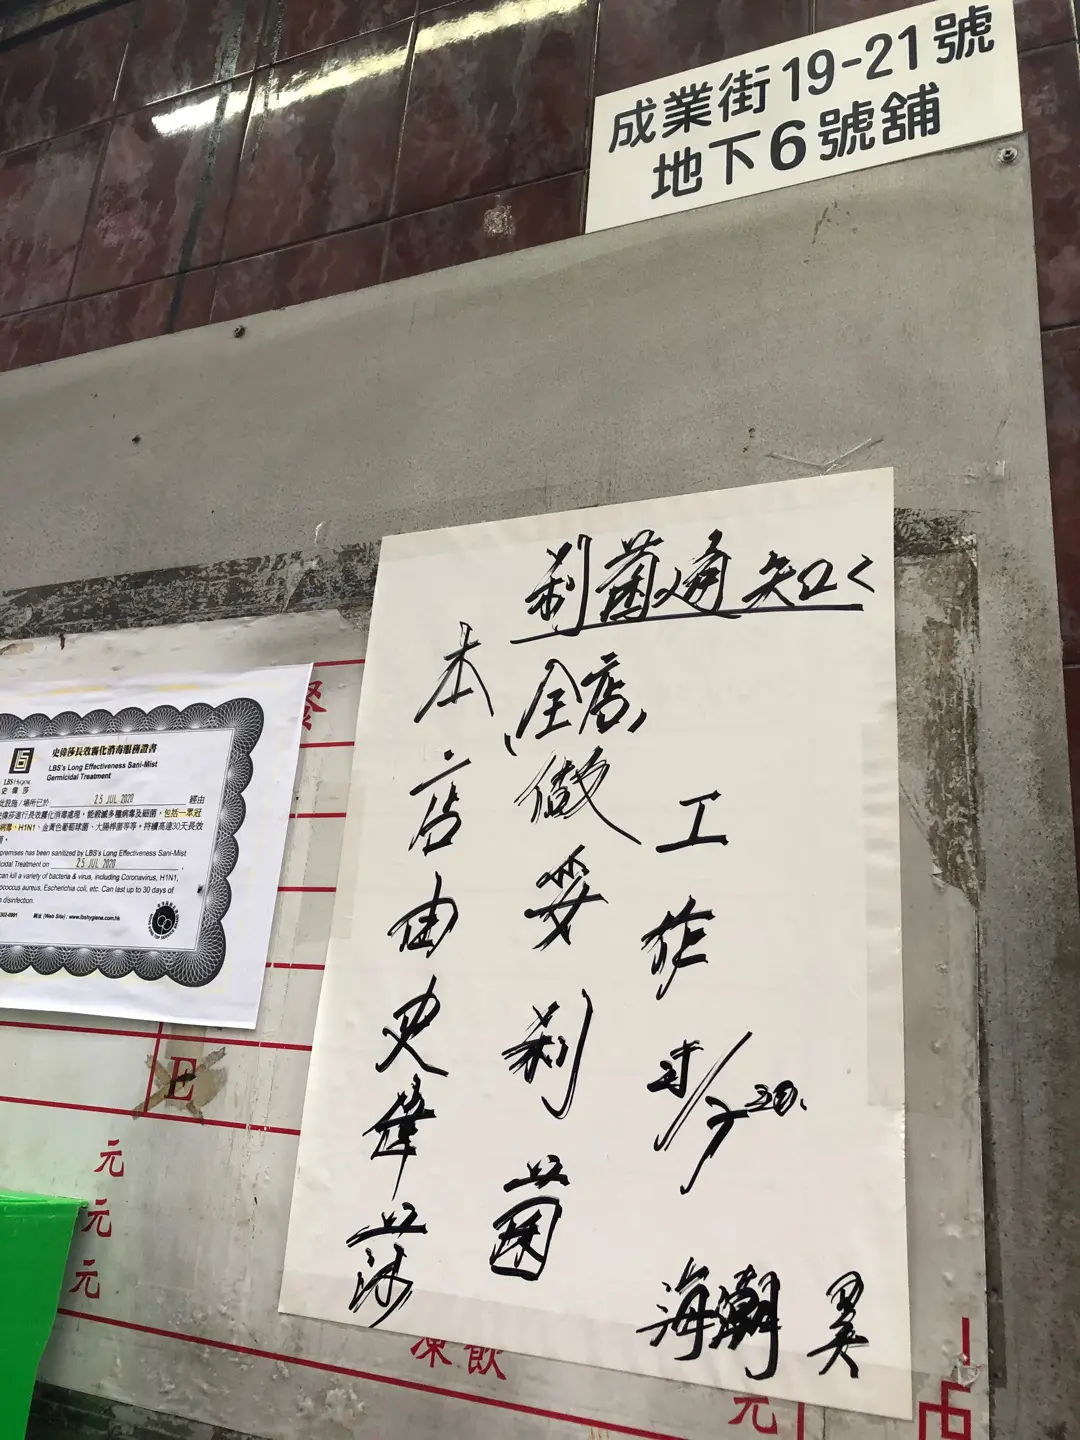 成業街19-21號
地下6號舖
刹菌通知
本店由史偉莎
全店做妥刹菌
工作
海潮
史偉莎長效霧化消毒服務證書
LBS's Long Effectiveness Sani-Mist
Germicidal Treatment
LBS Hygiene
史偉莎
此設施/場所已於 25 JUL 2020 經由
偉莎進行長效霧化消毒處理,能殺滅多種病毒及細菌,包括一眾冠
病毒、H1N1、金黃色葡萄球菌、大腸桿菌等等。持續高達30天長效
premises has been sanitized by LBS's Long Effectiveness Sani-Mist
icidal Treatment on 25 JUL 2020,
can kill a variety of bacteria & virus, including Coronavirus, H1N1,
ococcus aureus, Escherichia coli, etc. Can last up to 30 days of
disinfection.
網址 (Web Site): www.lbshygiene.com.hk
E
元
元
元
凍飲
元